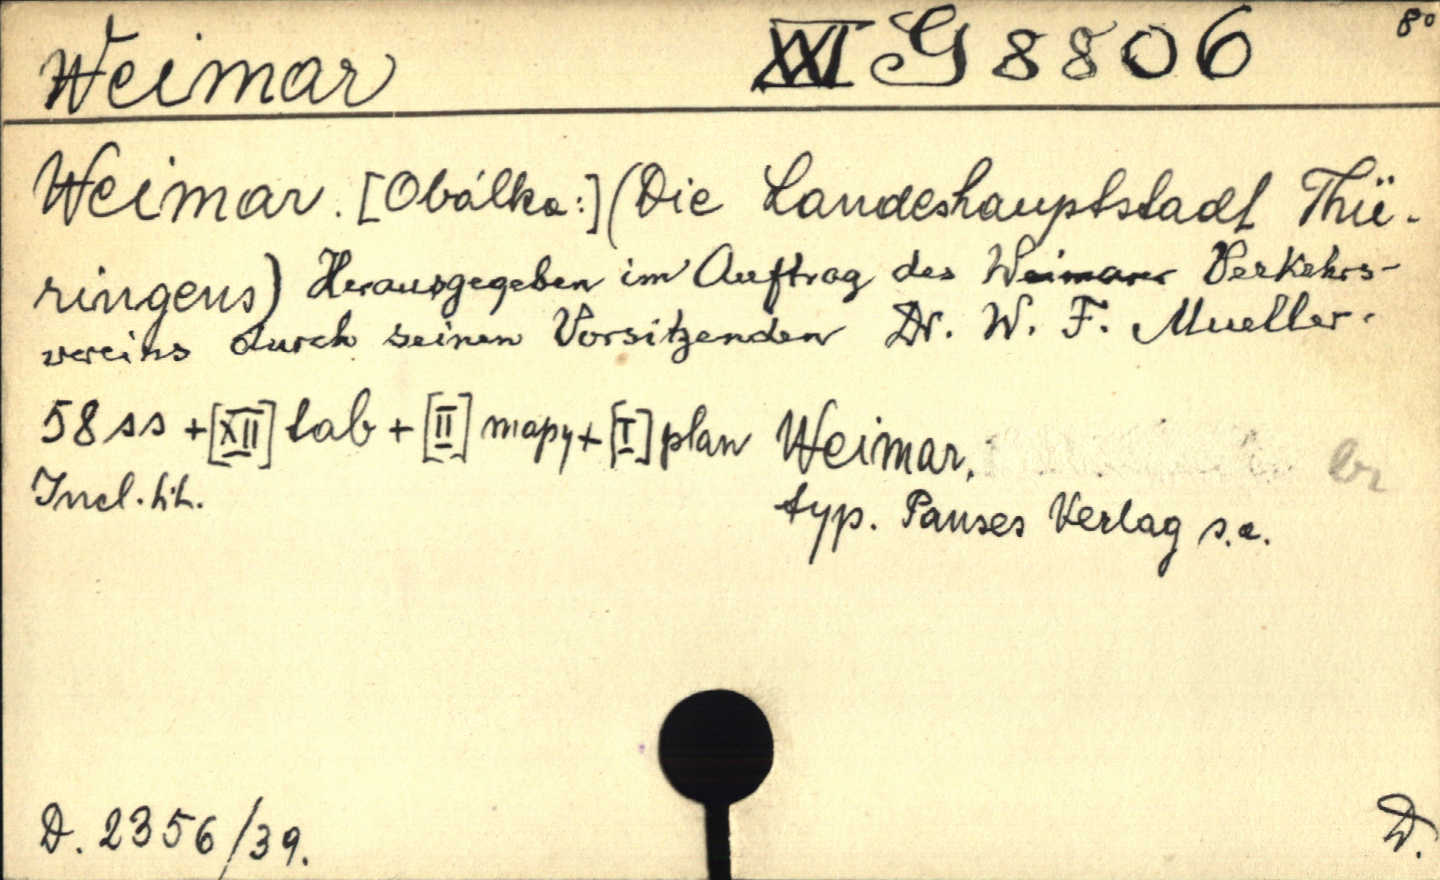 Weimar XXI G 8806 8°
Weimar. [Obálka:] (Die Landeshauptstadt Thü-
ringens) Herausgegeben im Auftrag des Weimarer Verkehrs-
vereins durch seinen Vorsitzenden Dr. W. F. Mueller.
58 ss + [XII] tab + [II] mapy + [I] plan Weimar,
Incl. tit.
typ. Panses Verlag s.a.
br
D. 2356/39. D.